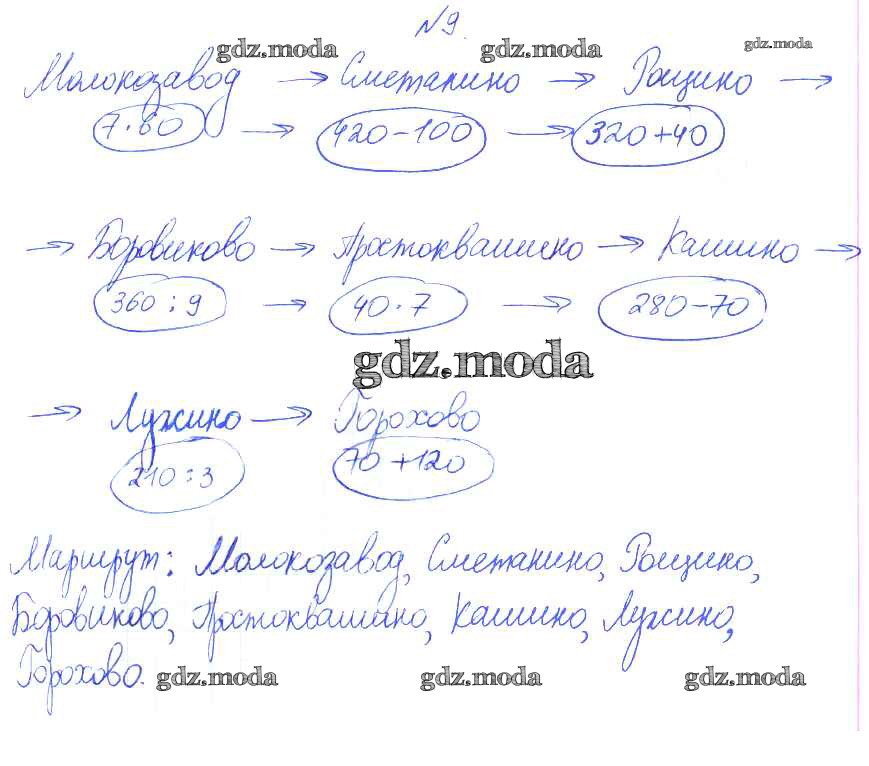 №9.
gdz.moda gdz.moda gdz.moda
Молокозавод → Сметанино → Рощино →
7·60 → 420-100 → 320+40
→ Боровиково → Простоквашино → Кашино →
360:9 → 40·7 → 280-70
gdz.moda
→ Лужино → Горохово
210:3 70+120
Маршрут: Молокозавод, Сметанино, Рощино,
Боровиково, Простоквашино, Кашино, Лужино,
Горохово.
gdz.moda gdz.moda gdz.moda